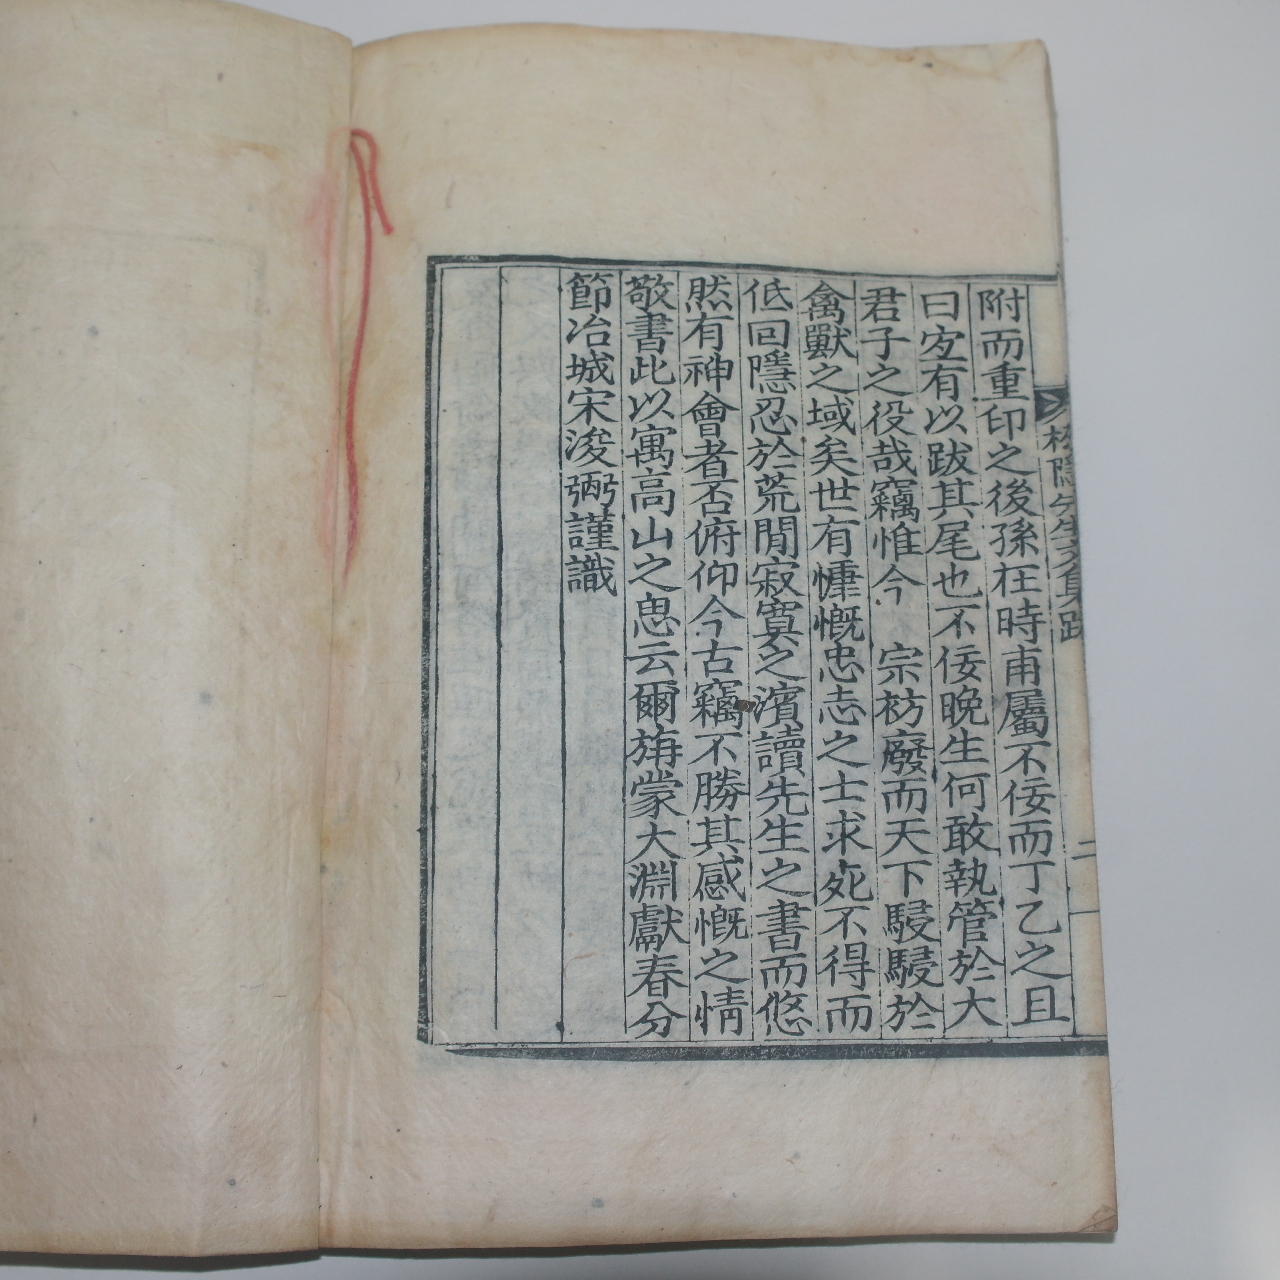 松隱先生文集跋
二
附而重印之後孫在時甫屬不佞而丁乙之且
曰宜有以跋其尾也不佞晚生何敢執管於大
君子之役哉竊惟今 宗祊廢而天下駸駸於
禽獸之域矣世有慷慨忠志之士求死不得而
低回隱忍於荒閒寂寞之濱讀先生之書而悠
然有神會者否俯仰今古竊不勝其感慨之情
敬書此以寓高山之思云爾旃蒙大淵獻春分
節冶城宋浚弼謹識